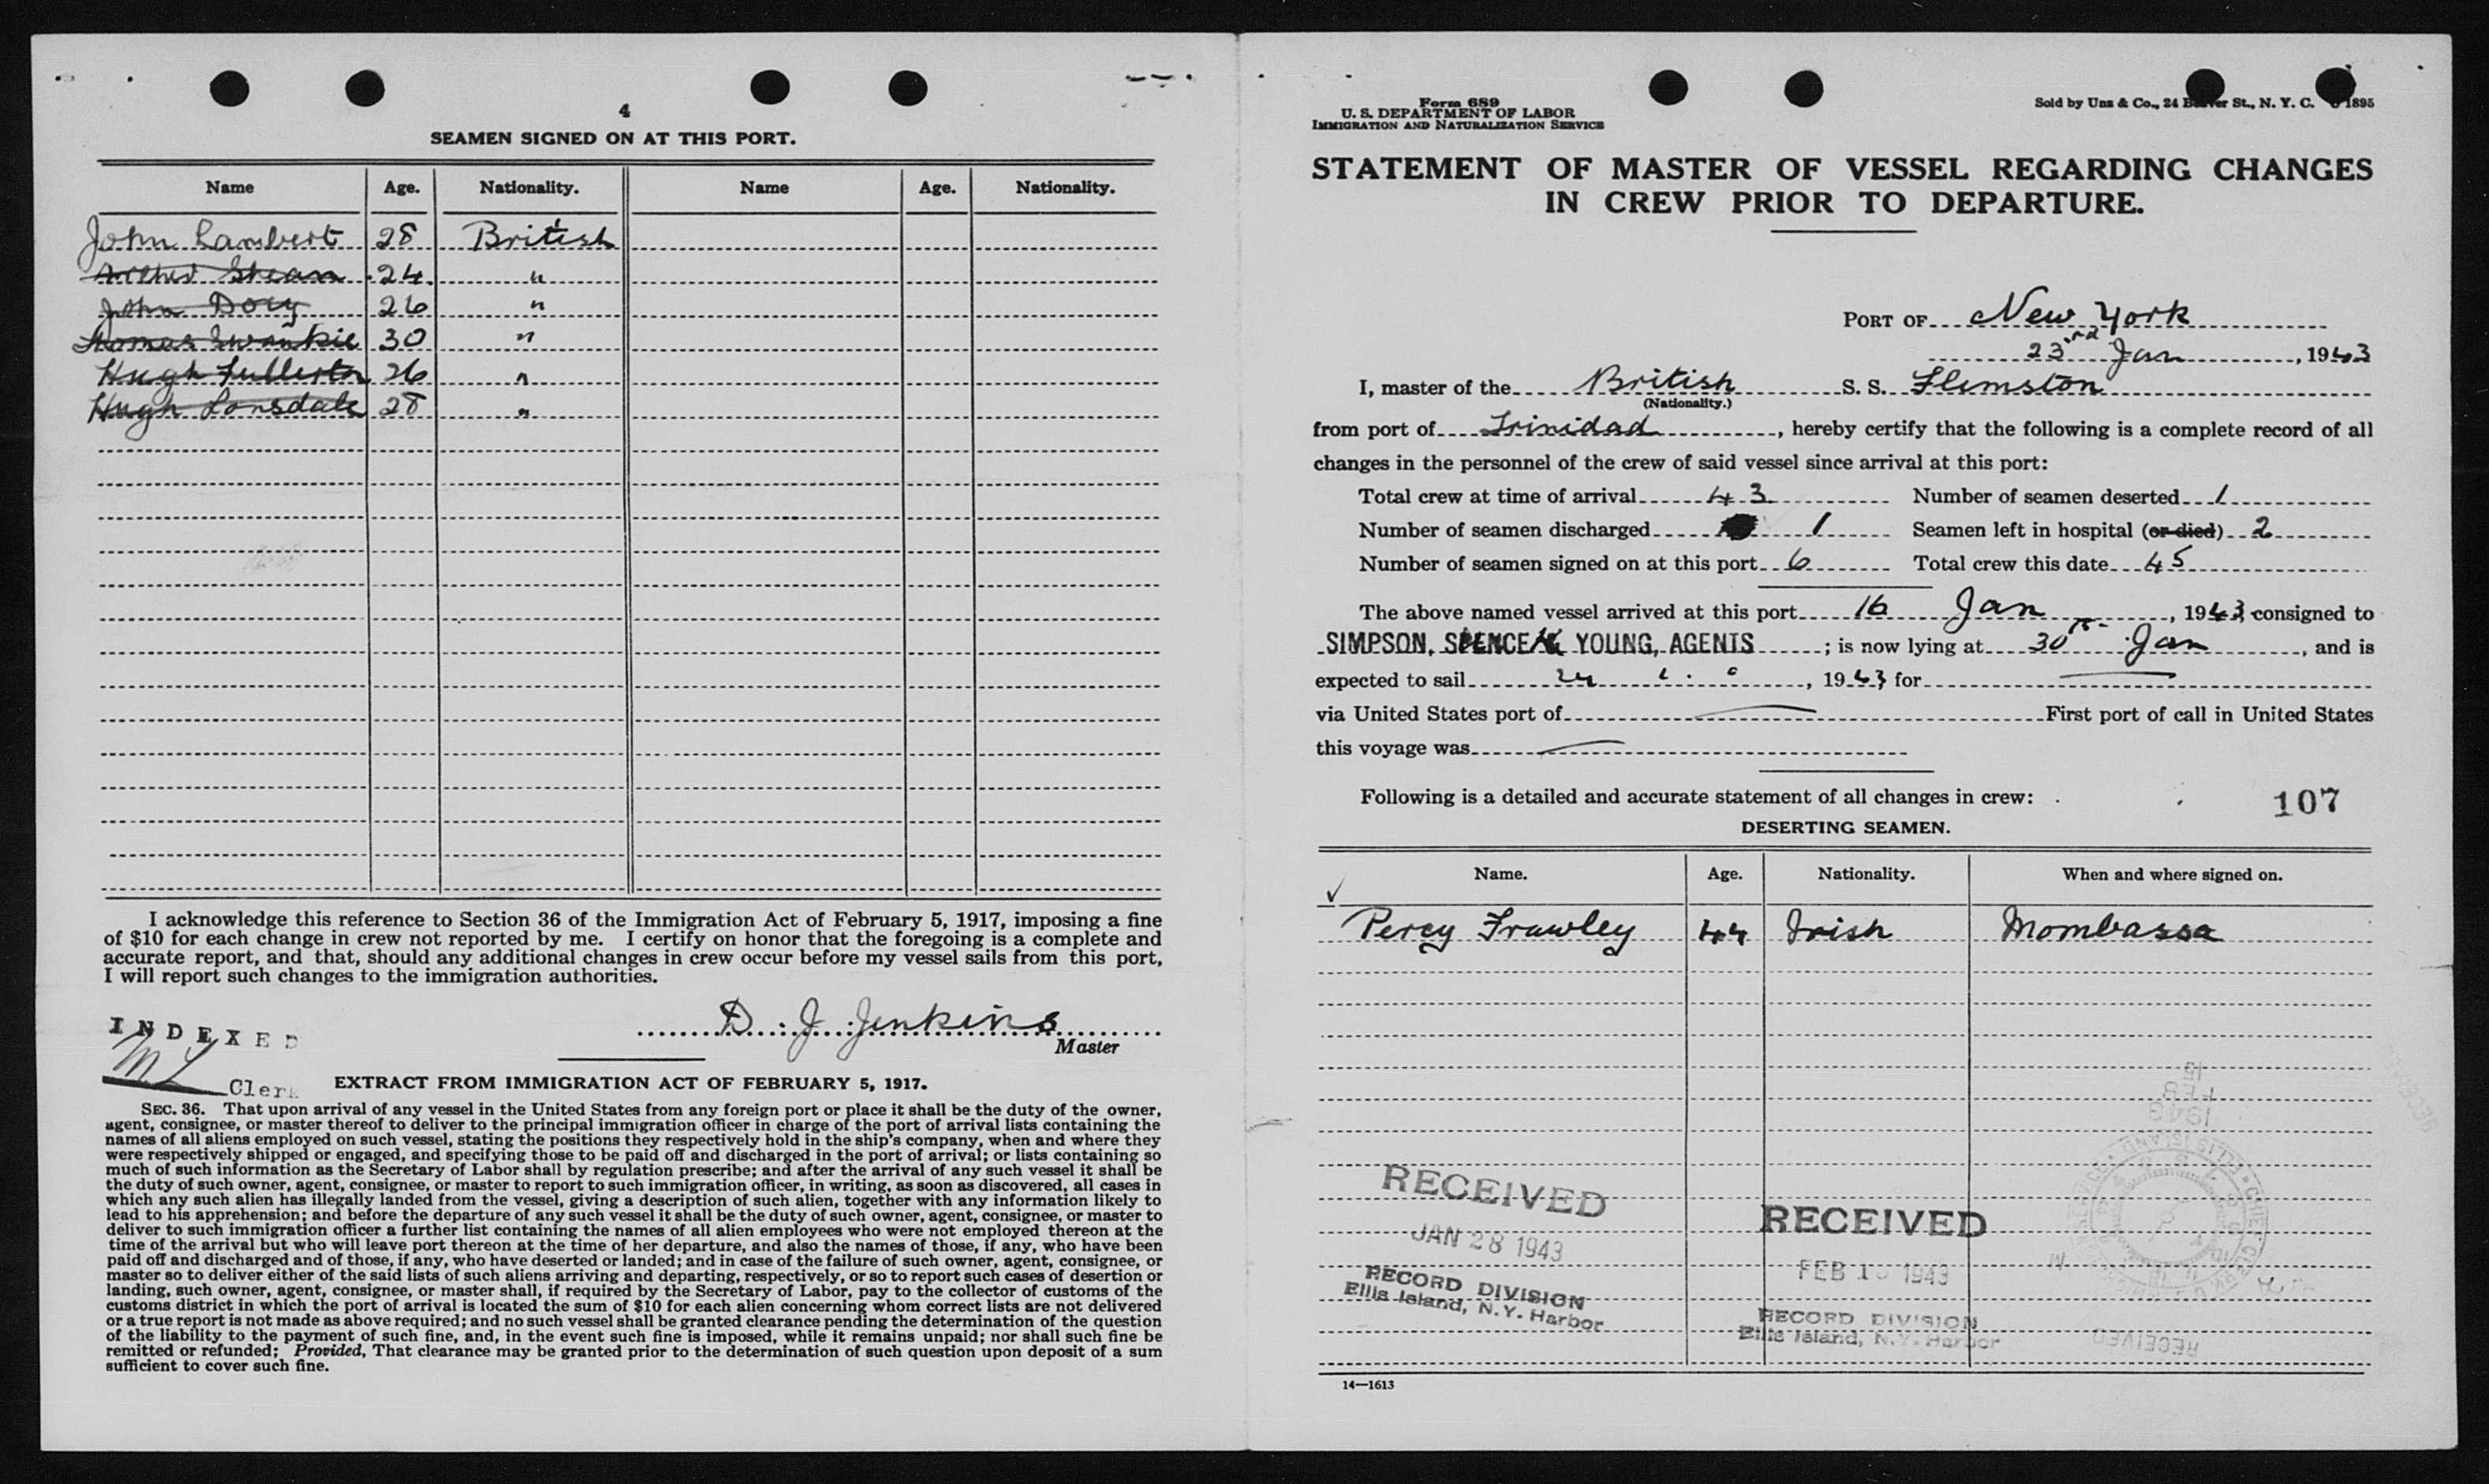 4
SEAMEN SIGNED ON AT THIS PORT.
Name Age. Nationality. Name Age. Nationality.
John Lambert 28 British
Shean 24 "
John Dory 26 "
Thomas Swankie 30 "
Hugh Fullerton 26 "
Hugh Lonsdale 28 "
I acknowledge this reference to Section 36 of the Immigration Act of February 5, 1917, imposing a fine
of $10 for each change in crew not reported by me. I certify on honor that the foregoing is a complete and
accurate report, and that, should any additional changes in crew occur before my vessel sails from this port,
I will report such changes to the immigration authorities.
D. J. Jenkins
Master
INDEXED
ML
Clerk
EXTRACT FROM IMMIGRATION ACT OF FEBRUARY 5, 1917.
SEC. 36. That upon arrival of any vessel in the United States from any foreign port or place it shall be the duty of the owner,
agent, consignee, or master thereof to deliver to the principal immigration officer in charge of the port of arrival lists containing the
names of all aliens employed on such vessel, stating the positions they respectively hold in the ship's company, when and where they
were respectively shipped or engaged, and specifying those to be paid off and discharged in the port of arrival; or lists containing so
much of such information as the Secretary of Labor shall by regulation prescribe; and after the arrival of any such vessel it shall be
the duty of such owner, agent, consignee, or master to report to such immigration officer, in writing, as soon as discovered, all cases in
which any such alien has illegally landed from the vessel, giving a description of such alien, together with any information likely to
lead to his apprehension; and before the departure of any such vessel it shall be the duty of such owner, agent, consignee, or master to
deliver to such immigration officer a further list containing the names of all alien employees who were not employed thereon at the
time of the arrival but who will leave port thereon at the time of her departure, and also the names of those, if any, who have been
paid off and discharged and of those, if any, who have deserted or landed; and in case of the failure of such owner, agent, consignee, or
master so to deliver either of the said lists of such aliens arriving and departing, respectively, or so to report such cases of desertion or
landing, such owner, agent, consignee, or master shall, if required by the Secretary of Labor, pay to the collector of customs of the
customs district in which the port of arrival is located the sum of $10 for each alien concerning whom correct lists are not delivered
or a true report is not made as above required; and no such vessel shall be granted clearance pending the determination of the question
of the liability to the payment of such fine, and, in the event such fine is imposed, while it remains unpaid; nor shall such fine be
remitted or refunded; Provided, That clearance may be granted prior to the determination of such question upon deposit of a sum
sufficient to cover such fine.
Form 689
U. S. DEPARTMENT OF LABOR
IMMIGRATION AND NATURALIZATION SERVICE
Sold by Unz & Co., 24 Beaver St., N. Y. C. 1895
STATEMENT OF MASTER OF VESSEL REGARDING CHANGES
IN CREW PRIOR TO DEPARTURE.
PORT OF New York
23rd Jan, 1943
I, master of the British S. S. Flimston
(Nationality.)
from port of Trinidad, hereby certify that the following is a complete record of all
changes in the personnel of the crew of said vessel since arrival at this port:
Total crew at time of arrival 43 Number of seamen deserted 1
Number of seamen discharged 1 Seamen left in hospital (or died) 2
Number of seamen signed on at this port 6 Total crew this date 45
The above named vessel arrived at this port 16 Jan, 1943 consigned to
SIMPSON, SPENCE & YOUNG, AGENTS; is now lying at 30th Jan, and is
expected to sail 24, 1943 for
via United States port of First port of call in United States
this voyage was
Following is a detailed and accurate statement of all changes in crew:
107
DESERTING SEAMEN.
Name. Age. Nationality. When and where signed on.
Percy Frawley 44 Irish Mombassa
RECEIVED
JAN 28 1943
RECORD DIVISION
Ellis Island, N.Y. Harbor
RECEIVED
FEB 1943
RECORD DIVISION
Ellis Island, N.Y. Harbor
1943
FEB
15
RECEIVED
14—1613